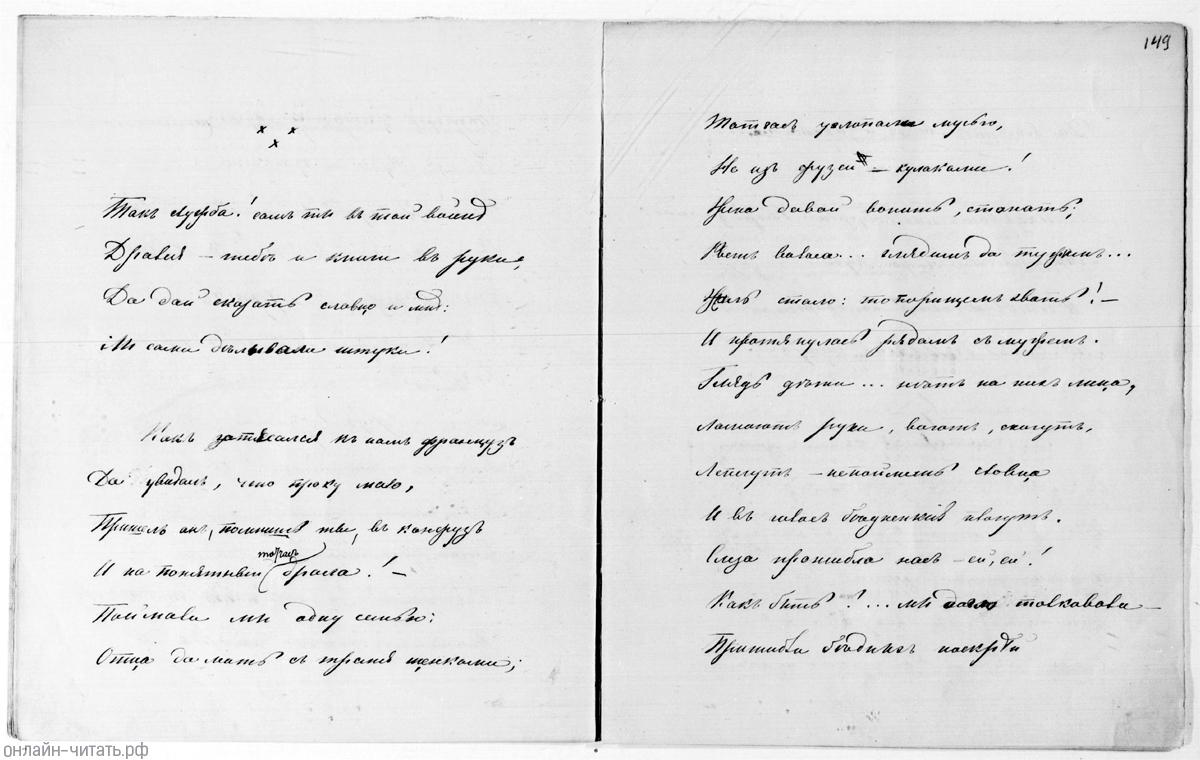 149
× ×
×
Такъ служба! самъ ты въ той войнѣ
Дрался – тебѣ и книги въ руки,
Да дай сказать словцо и мнѣ:
Мы сами дѣлывали штуки!
Какъ затесался къ намъ французъ
Да увидалъ, что проку мало,
Пришелъ онъ, помнишь ты, въ конфузъ
И на попятный тотчасъ брала! –
Поймали мы одну семью:
Отца да мать съ тремя щенками;
Тотчасъ ухлопали мусью,
Не изъ фузеи – кулаками!
Жена давай вопить, стонать;
Рветъ волоса... глядимъ да тужимъ...
Жаль стало: топорищемъ хвать! –
И протянулась рядомъ съ мужемъ.
Глядь дѣти... нѣтъ на нихъ лица,
Ломаютъ руки, воютъ, скачутъ,
Лепечутъ – не поймешь словца
И въ голосъ бѣдненькіе плачутъ.
Слеза прошибла насъ – ей, ей!
Какъ быть?... мы долго толковали –
Пришибли бѣдныхъ поскорѣй
онлайн-читать.рф